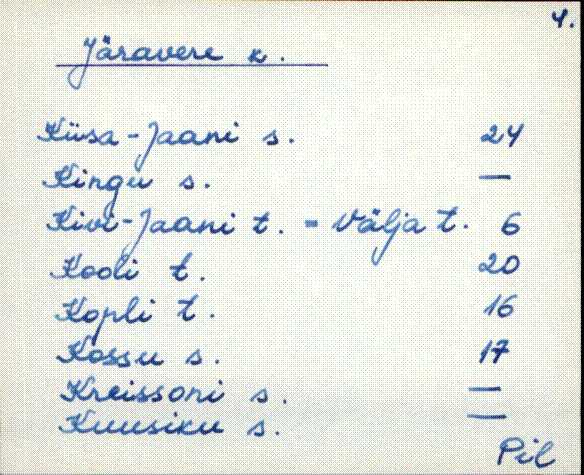 4.
Järavere k.
Küsa-Jaani s. 24
Kingu s. —
Kivi-Jaani t. = Välja t. 6
Kooli t. 20
Kopli t. 16
Kossu s. 17
Kreissoni s. —
Kuusiku s. —
Pil